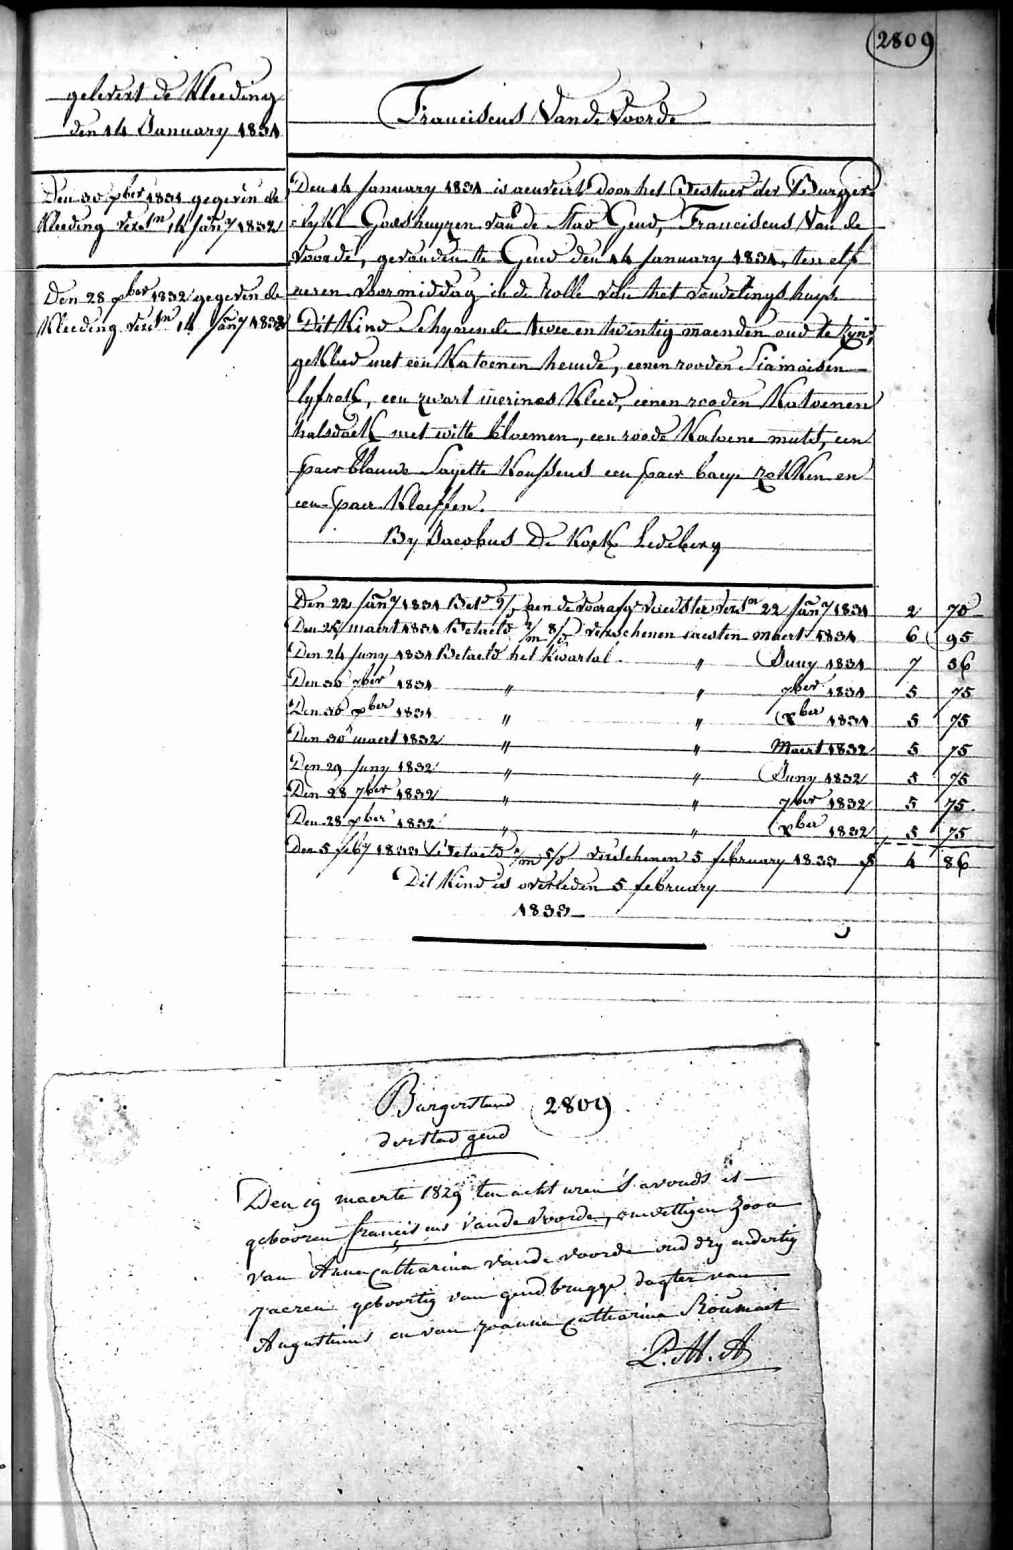 2809
gelevert de Kleeding
den 14 January 1831
Franciscus Vande Voorde
Den 30 xber 1831 gegeven de
Kleeding verstn 14 Jany 1832
Den 28 xber 1832 gegeven de
Kleeding verstn 14 Jany 1833
Den 14 January 1831 is aenveirt door het Bestuer der Burger-
lyke Godshuyzen van de Stad Gend, Franciscus Van de
Voorde, gevonden te Gend den 14 January 1831, ten elf
ueren voormiddag in de rolle van het vondelingshuys
Dit Kind Schynende twee en twintig maenden oud te zyn,
gekleed met een Katoenen hemde, eenen rooden Siamoisen
lyfrok, een zwart merinos Kleed, eenen rooden Katoenen
halsdoek met witte bloemen, een roode Katoene muts, een
paer blauwe Sayette Koussens een paer baeye zokken en
een paer Kloeffen.
By Jacobus De Kock Ledeberg
Den 22 Jany 1831 Betd aen de voorafge verstn 22 Jany 1831 2 75
Den 25 maert 1831 Betaeld verschenen maert 1831 6 95
Den 24 Juny 1831 Betaeld het Kwartal " Juny 1831 7 36
Den 30 7ber 1831 " " 7ber 1831 5 75
Den 30 xber 1831 " " xber 1831 5 75
Den 30 maert 1832 " " Maert 1832 5 75
Den 29 Juny 1832 " " Juny 1832 5 75
Den 28 7ber 1832 " " 7ber 1832 5 75
Den 28 xber 1832 " " xber 1832 5 75
Den 5 feby 1833 Betaeld verschenen 5 february 1833 4 86
Dit Kind is overleden 5 february
1833
Burgerstand 2809
der stad gend
Den 19 maerte 1829 ten acht uren 's avonds is
gebooren franciscus Vande Voorde, onwettigen zoon
van Anna Catharina vande voorde oud dry en dertig
jaeren geboortig van gendbrugge dogter van
Augustinus en van joanna Catharina
P.M.A